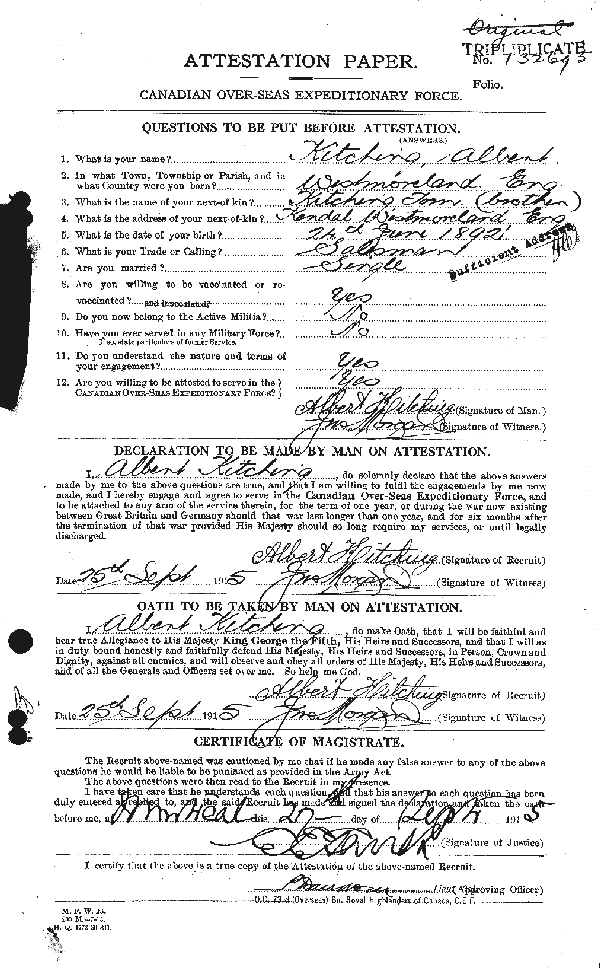 Original
TRIPLIBLICATE
ATTESTATION PAPER.
No. 132693
Folio.
CANADIAN OVER-SEAS EXPEDITIONARY FORCE.
QUESTIONS TO BE PUT BEFORE ATTESTATION.
(ANSWERS.)
1. What is your name? Kitching, Albert
2. In what Town, Township or Parish, and in
what Country were you born? Westmoreland Eng
3. What is the name of your next-of-kin? Kitching Tom (brother)
4. What is the address of your next-of-kin? Kendal Westmoreland Eng
5. What is the date of your birth? 24th June 1892
6. What is your Trade or Calling? Salesman
Sufficient Address
7. Are you married? Single
8. Are you willing to be vaccinated or re-
vaccinated? and inoculated? Yes
9. Do you now belong to the Active Militia? No
10. Have you ever served in any Military Force? No
If so, state particulars of former Service.
11. Do you understand the nature and terms of
your engagement? Yes
12. Are you willing to be attested to serve in the Yes
CANADIAN OVER-SEAS EXPEDITIONARY FORCE?
Albert Kitching (Signature of Man.)
Jno Morgan (Signature of Witness.)
DECLARATION TO BE MADE BY MAN ON ATTESTATION.
I, Albert Kitching, do solemnly declare that the above answers
made by me to the above questions are true, and that I am willing to fulfil the engagements by me now
made, and I hereby engage and agree to serve in the Canadian Over-Seas Expeditionary Force, and
to be attached to any arm of the service therein, for the term of one year, or during the war now existing
between Great Britain and Germany should that war last longer than one year, and for six months after
the termination of that war provided His Majesty should so long require my services, or until legally
discharged.
Albert Kitching (Signature of Recruit)
Date 25th Sept 1915 Jno Morgan (Signature of Witness)
OATH TO BE TAKEN BY MAN ON ATTESTATION.
I, Albert Kitching, do make Oath, that I will be faithful and
bear true Allegiance to His Majesty King George the Fifth, His Heirs and Successors, and that I will as
in duty bound honestly and faithfully defend His Majesty, His Heirs and Successors, in Person, Crown and
Dignity, against all enemies, and will observe and obey all orders of His Majesty, His Heirs and Successors,
and of all the Generals and Officers set over me. So help me God.
Albert Kitching (Signature of Recruit)
Date 25th Sept 1915 Jno Morgan (Signature of Witness)
CERTIFICATE OF MAGISTRATE.
The Recruit above-named was cautioned by me that if he made any false answer to any of the above
questions he would be liable to be punished as provided in the Army Act.
The above questions were then read to the Recruit in my presence.
I have taken care that he understands each question and that his answer to each question has been
duly entered as replied to, and the said Recruit has made and signed the declaration and taken the oath
before me, at Montreal this 27 day of Sept 1915
(Signature of Justice)
I certify that the above is a true copy of the Attestation of the above-named Recruit.
(Approving Officer)
O.C. 73rd (Overseas) Bn. Royal Highlanders of Canada, C.E.F.
M. F. W. 23.
H. Q. 1772-39-841.